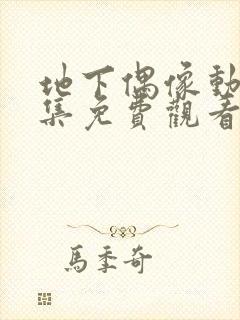 地下偶像動
集免費觀看
馬季奇